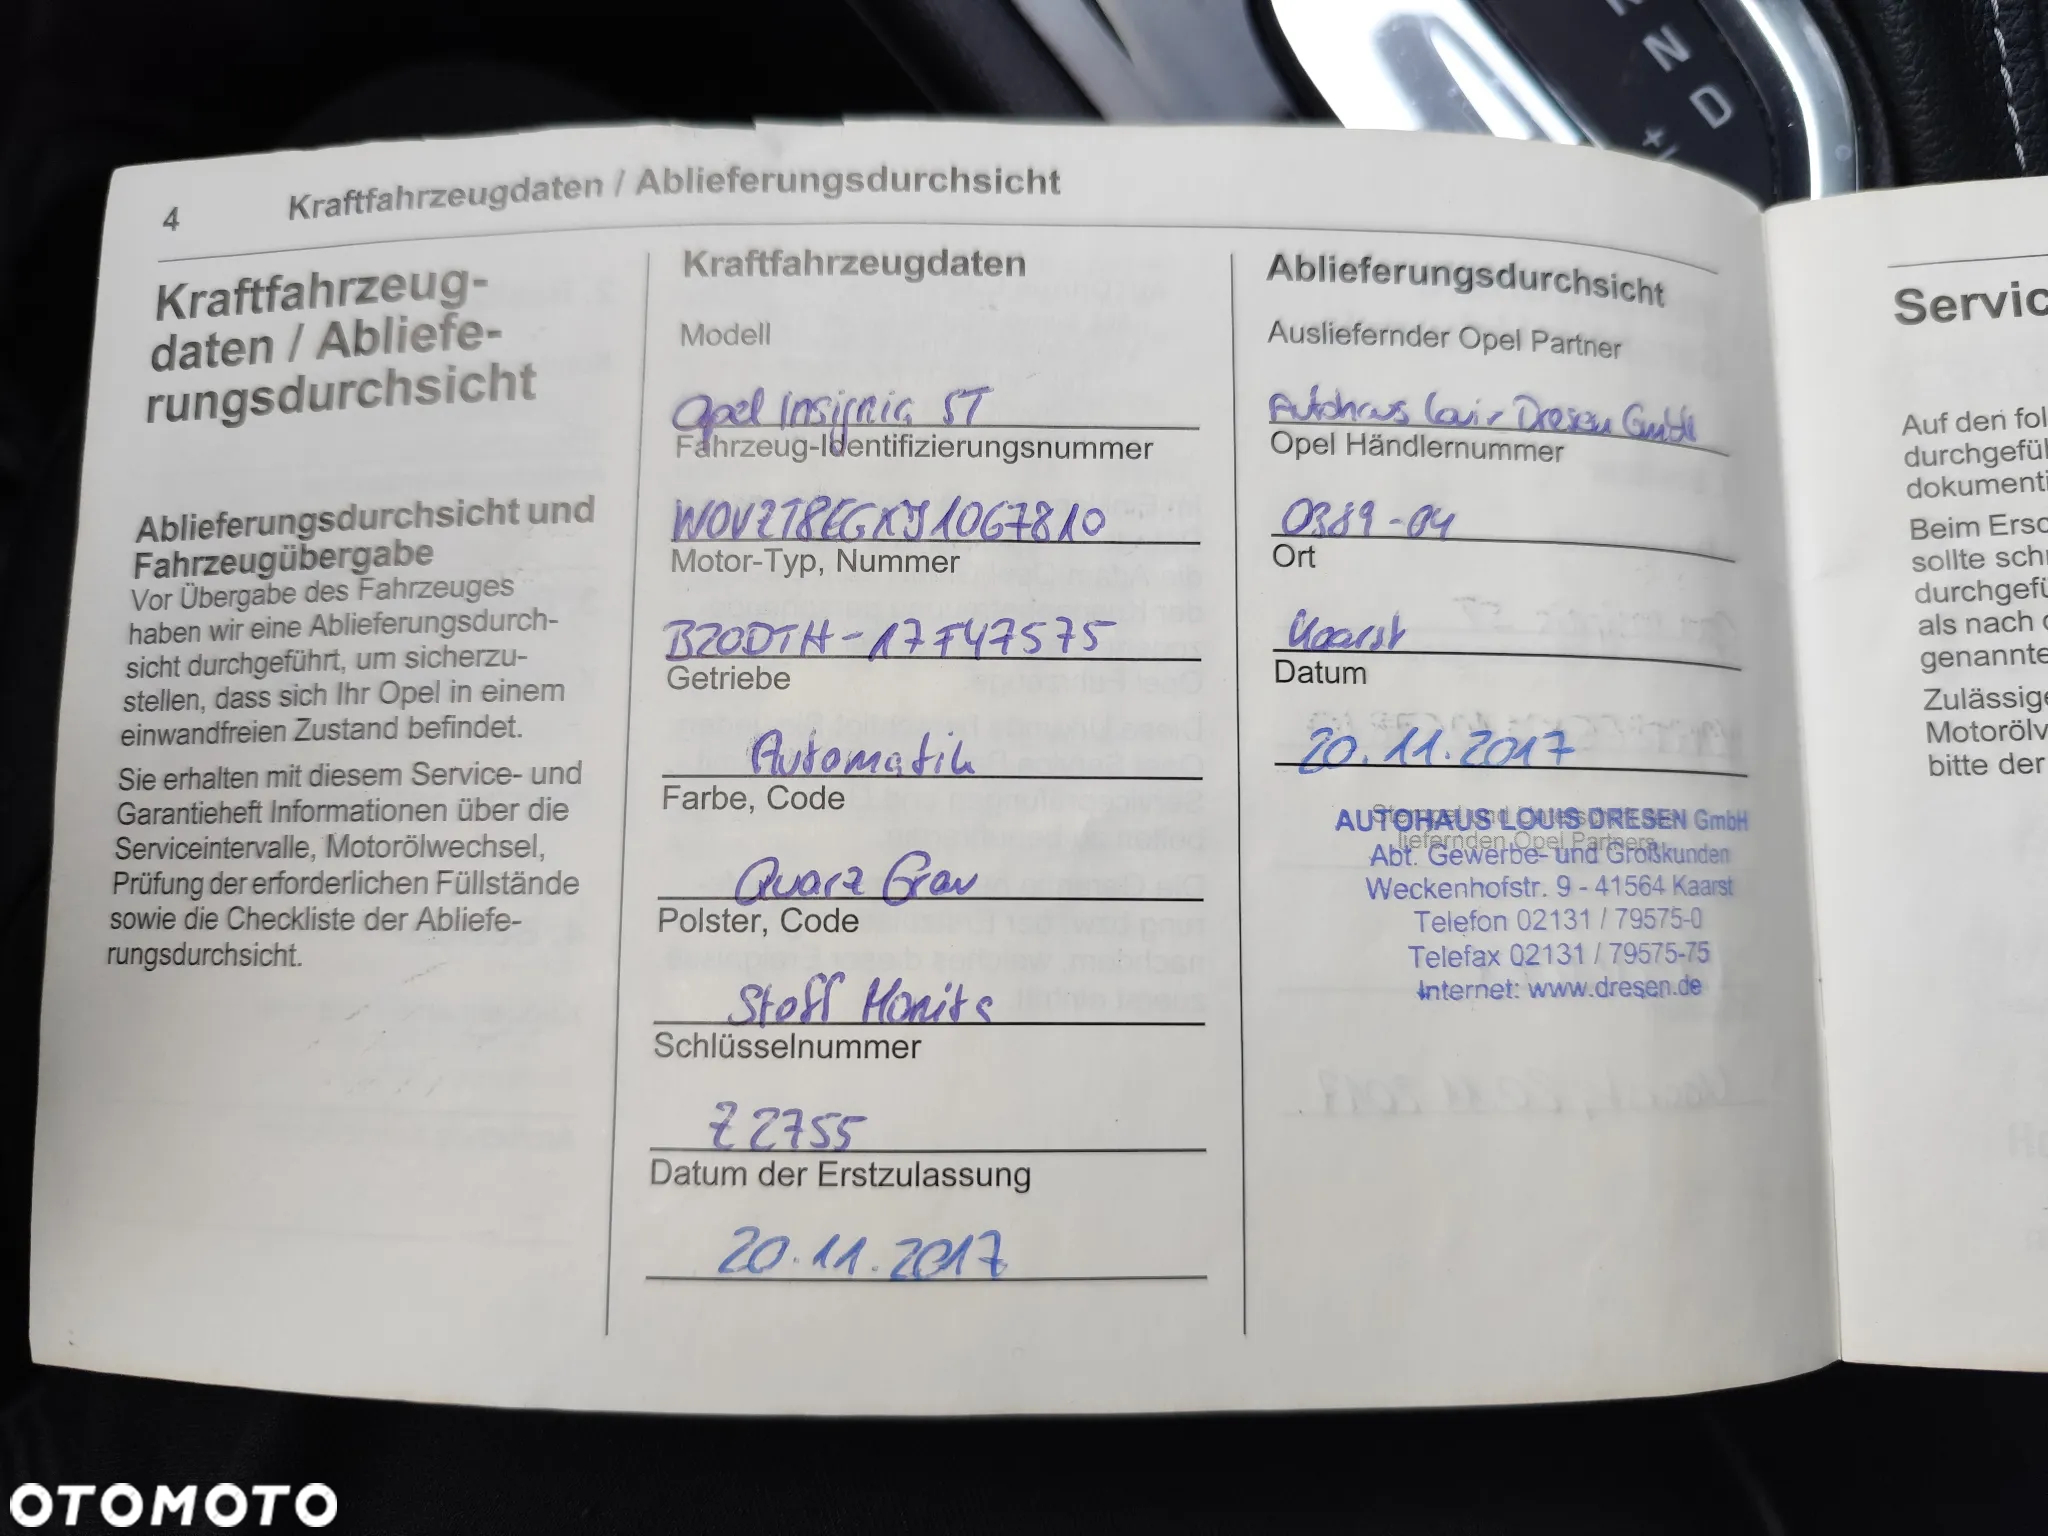 N
D
4
Kraftfahrzeugdaten / Ablieferungsdurchsicht
Kraftfahrzeug-
daten / Abliefe-
rungsdurchsicht
Ablieferungsdurchsicht und
Fahrzeugübergabe
Vor Übergabe des Fahrzeuges
haben wir eine Ablieferungsdurch-
sicht durchgeführt, um sicherzu-
stellen, dass sich Ihr Opel in einem
einwandfreien Zustand befindet.
Sie erhalten mit diesem Service- und
Garantieheft Informationen über die
Serviceintervalle, Motorölwechsel,
Prüfung der erforderlichen Füllstände
sowie die Checkliste der Abliefe-
rungsdurchsicht.
Kraftfahrzeugdaten
Modell
Opel Insignia ST
Fahrzeug-Identifizierungsnummer
W0VZT8EGXJ1067810
Motor-Typ, Nummer
B20DTH-17F47575
Getriebe
Automatik
Farbe, Code
Quarz Grau
Polster, Code
Stoff Monita
Schlüsselnummer
Z2755
Datum der Erstzulassung
20.11.2017
Ablieferungsdurchsicht
Ausliefernder Opel Partner
Autohaus Louis Dresen GmbH
Opel Händlernummer
0389-04
Ort
Kaarst
Datum
20.11.2017
Stempel und
liefernden Opel Partners
AUTOHAUS LOUIS DRESEN GmbH
Abt. Gewerbe- und Großkunden
Weckenhofstr. 9 - 41564 Kaarst
Telefon 02131 / 79575-0
Telefax 02131 / 79575-75
Internet: www.dresen.de
Servic
Auf den fol
durchgefüh
dokumenti
Beim Ersc
sollte sch
durchgefü
als nach
genannte
Zulässige
Motorölv
bitte der
OTOMOTO